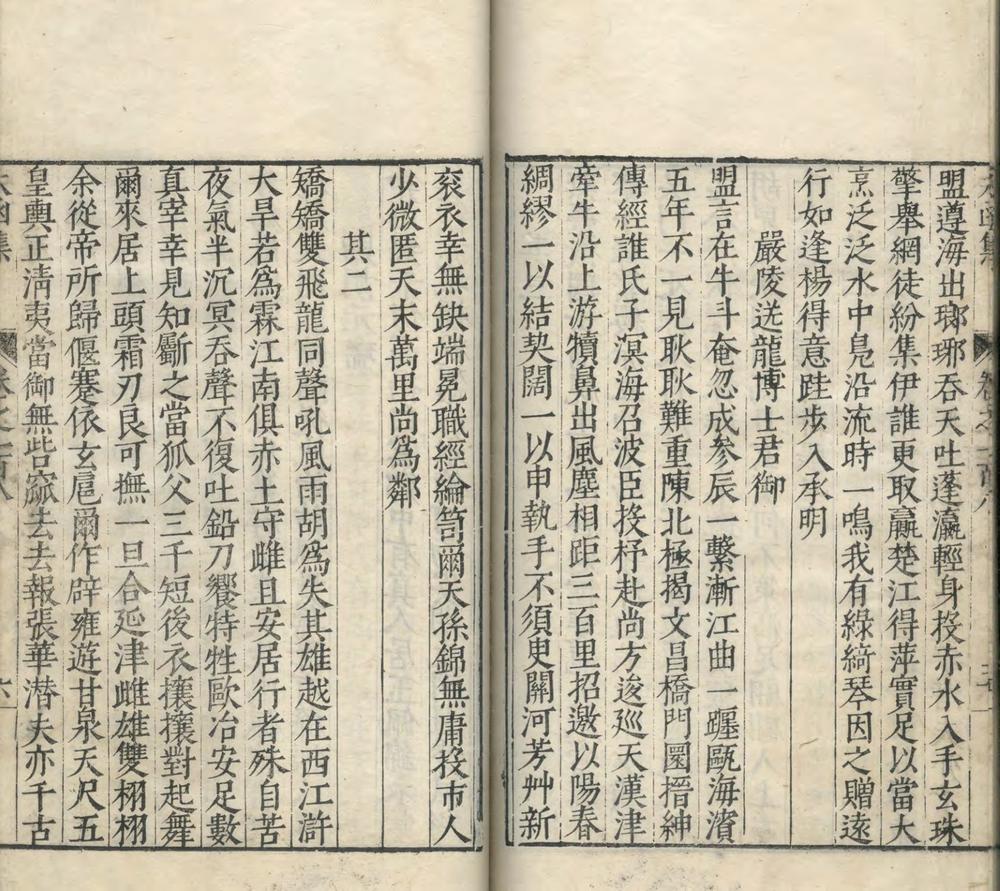 盟遵海出瑯琊吞天吐蓬瀛輕身投赤水入手玄珠
擎舉網徒紛集伊誰更取贏楚江得萍實足以當大
烹泛泛水中鳧沿流時一鳴我有綠綺琴因之贈遠
行如逢楊得意跬步入承明
嚴陵送龍博士君御
盟言在牛斗奄忽成參辰一繫漸江曲一躔甌海濱
五年不一見耿耿難重陳北極揭文昌橋門圜搢紳
傳經誰氏子溟海召波臣投杼赴尚方逡巡天漢津
牽牛沿上游犢鼻出風塵相距三百里招邀以陽春
綢繆一以結契闊一以申執手不須臾關河芳艸新
袞衣幸無缺端冕職經綸笥爾天孫錦無庸投市人
少微匿天末萬里尚為鄰
其二
矯矯雙飛龍同聲吼風雨胡為失其雄越在西江滸
大旱若為霖江南俱赤土守雌且安居行者殊自苦
夜氣半沉冥吞聲不復吐鉛刀饗特牲歐冶安足數
真宰幸見知斸之當狐父三千短後衣攘攘對起舞
爾來居上頭霜刃良可撫一旦合延津雌雄雙栩栩
余從帝所歸偃蹇依玄扈爾作辟雍遊甘泉天尺五
皇輿正清夷當御無呰窳去去報張華潛夫亦千古
太函集
卷之一百八
六